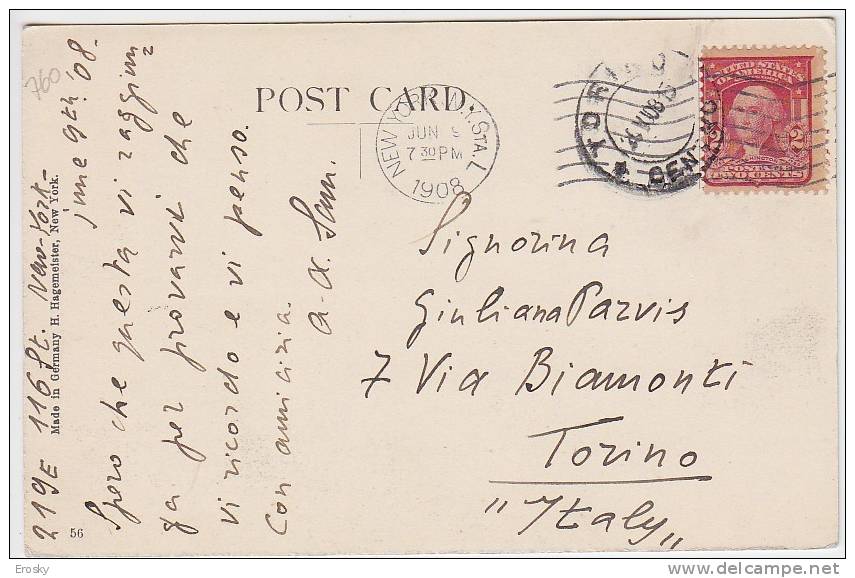 760
219E 116 St. New-York
June 9th. '08.
Spero che questa vi raggiun
ga per provarvi che
vi ricordo e vi penso.
Con amicizia.
Sam.
Made in Germany H. Hagemeister, New York.
56
POST CARD.
NEW YORK, N.Y. STA. L
JUN 9
7 30 PM
1908
TORINO
CENTRO
UNITED STATES
OF AMERICA
2 2
TWO CENTS
Signorina
Giuliana Parvis
7 Via Biamonti
Torino
"Italy"
Erosky
www.delcampe.net